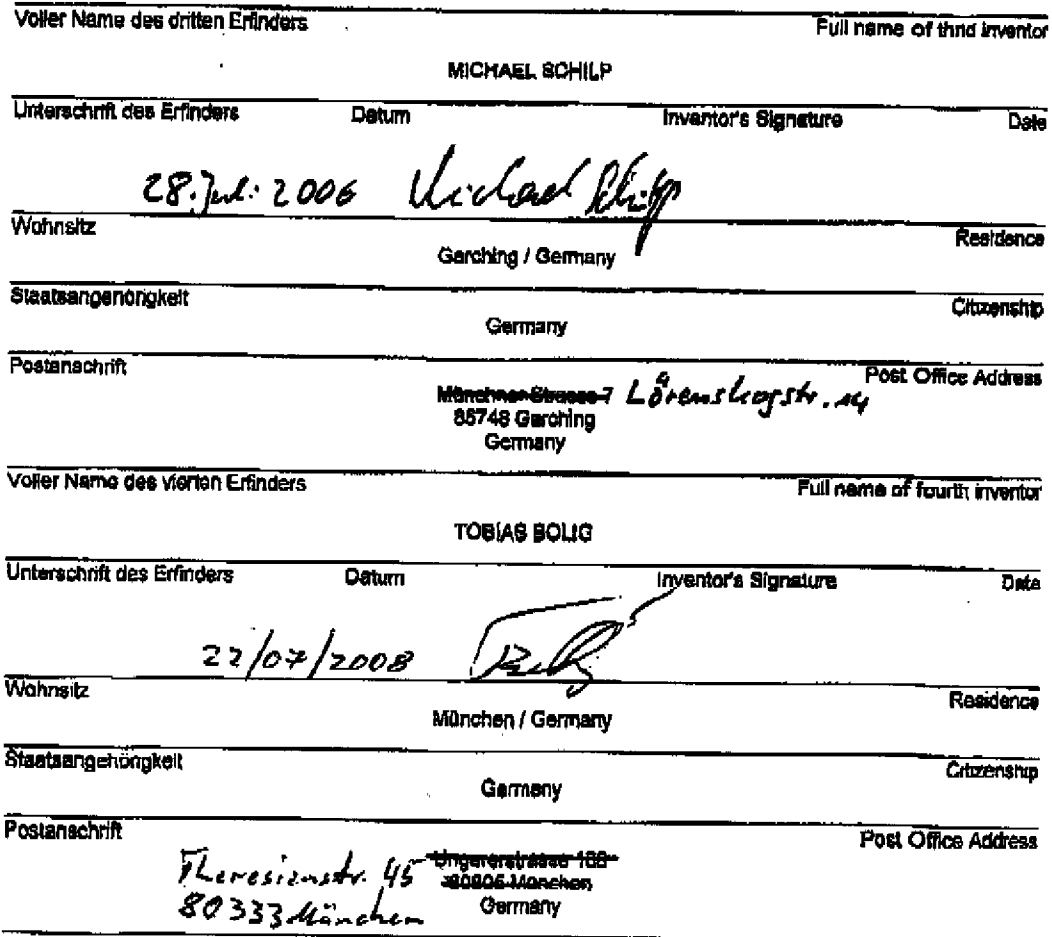 Voller Name des dritten Erfinders Full name of third inventor
MICHAEL SCHILP
Unterschrift des Erfinders Datum Inventor's Signature Date
28. Juli 2006 Michael Schilp
Wohnsitz Residence
Garching / Germany
Staatsangehörigkeit Citizenship
Germany
Postanschrift Post Office Address
Münchner Strasse 7 Lörenskogstr. 14
85748 Garching
Germany
Voller Name des vierten Erfinders Full name of fourth inventor
TOBIAS BOLIG
Unterschrift des Erfinders Datum Inventor's Signature Date
22/07/2008
Wohnsitz Residence
München / Germany
Staatsangehörigkeit Citizenship
Germany
Postanschrift Post Office Address
Theresienstr. 45 Ungererstrasse
80333 München 80805 München
Germany